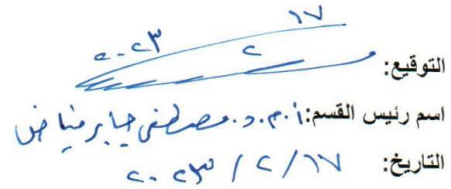 ١٧
٢
٢٠٢٣
التوقيع:
اسم رئيس القسم: أ.م.د. مصطفى جابر فياض
التاريخ: ١٧ / ٢ / ٢٠٢٣